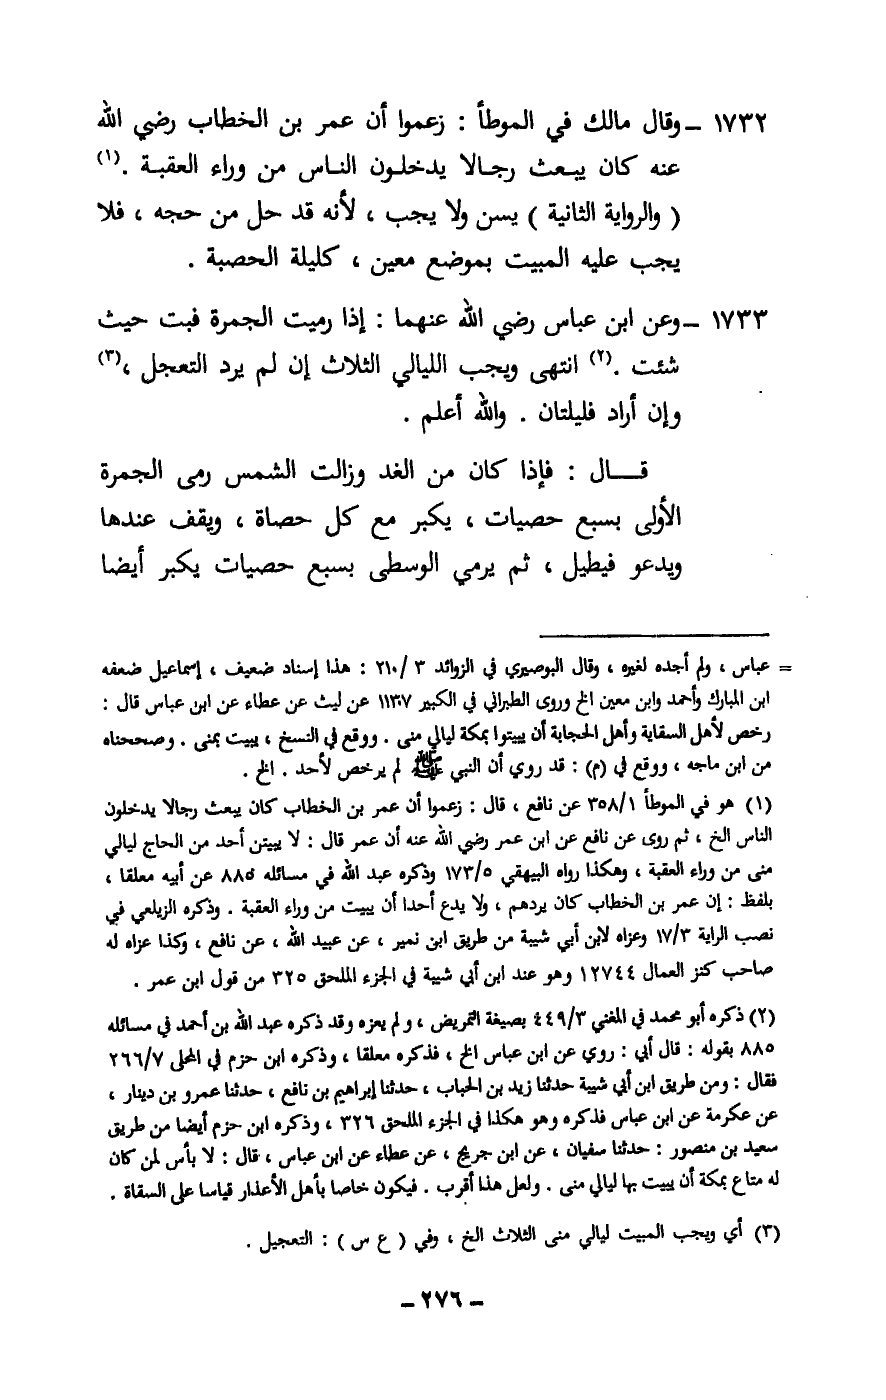 ١٧٣٢ ــ وقال مالك في الموطأ : زعموا أن عمر بن الخطاب رضي الله
عنه كان يبعث رجالا يدخلون الناس من وراء العقبة .(١)
( والرواية الثانية ) يسن ولا يجب ، لأنه قد حل من حجه ، فلا
يجب عليه المبيت بموضع معين ، كليلة الحصبة .
١٧٣٣ ــ وعن ابن عباس رضي الله عنهما : إذا رميت الجمرة فبت حيث
شئت .(٢) انتهى ويجب الليالي الثلاث إن لم يرد التعجل ،(٣)
وإن أراد فليلتان . والله أعلم .
قــــال : فإذا كان من الغد وزالت الشمس رمى الجمرة
الأولى بسبع حصيات ، يكبر مع كل حصاة ، ويقف عندها
ويدعو فيطيل ، ثم يرمي الوسطى بسبع حصيات يكبر أيضا
= عباس ، ولم أجده لغيره ، وقال البوصيري في الزوائد ٣ /٢١٠ : هذا إسناد ضعيف ، إسماعيل ضعفه
ابن المبارك وأحمد وابن معين الخ وروى الطبراني في الكبير ١١٣٠٧ عن ليث عن عطاء عن ابن عباس قال :
رخص لأهل السقاية وأهل الحجابة أن يبيتوا بمكة ليالي منى . ووقع في النسخ ، يبيت بمنى . وصححناه
من ابن ماجه ، ووقع في (م) : قد روي أن النبي ﷺ لم يرخص لأحد . الخ .
(١) هو في الموطأ ٣٥٨/١ عن نافع ، قال : زعموا أن عمر بن الخطاب كان يبعث رجالا يدخلون
الناس الخ ، ثم روى عن نافع عن ابن عمر رضي الله عنه أن عمر قال : لا يبيتن أحد من الحاج ليالي
منى من وراء العقبة ، وهكذا رواه البيهقي ١٧٣/٥ وذكره عبد الله في مسائله ٨٨٥ عن أبيه معلقا ،
بلفظ : إن عمر بن الخطاب كان يردهم ، ولا يدع أحدا أن يبيت من وراء العقبة . وذكره الزيلعي في
نصب الراية ١٧/٣ وعزاه لابن أبي شيبة من طريق ابن نمير ، عن عبيد الله ، عن نافع ، وكذا عزاه له
صاحب كنز العمال ١٢٧٤٤ وهو عند ابن أبي شيبة في الجزء الملحق ٣٢٥ من قول ابن عمر .
(٢) ذكره أبو محمد في المغني ٤٤٩/٣ بصيغة التمريض ، ولم يعزه وقد ذكره عبد الله بن أحمد في مسائله
٨٨٥ بقوله : قال أبي : روي عن ابن عباس الخ ، فذكره معلقا ، وذكره ابن حزم في المحلى ٢٦٦/٧
فقال : ومن طريق ابن أبي شيبة حدثنا زيد بن الحباب ، حدثنا إبراهيم بن نافع ، حدثنا عمرو بن دينار ،
عن عكرمة عن ابن عباس فذكره وهو هكذا في الجزء الملحق ٣٢٦ ، وذكره ابن حزم أيضا من طريق
سعيد بن منصور : حدثنا سفيان ، عن ابن جريج ، عن عطاء عن ابن عباس ، قال : لا بأس لمن كان
له متاع بمكة أن يبيت بها ليالي منى . ولعل هذا أقرب . فيكون خاصا بأهل الأعذار قياسا على السقاة .
(٣) أي ويجب المبيت ليالي منى الثلاث الخ ، وفي ( ع س ) : التعجيل .
ــ ٢٧٦ ــ